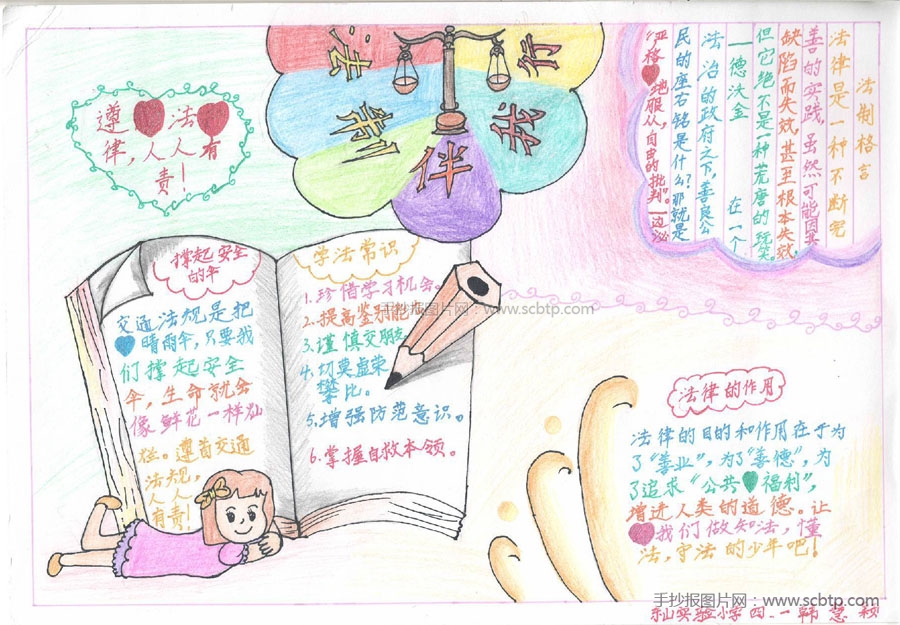 遵法
律,人人有
责!
法制伴我行
法制格言
法律是一种不断完
善的实践,虽然可能因其
缺陷而失效,甚至根本失效,
但它绝不是一种荒唐的玩笑。
—德沃金 在一个
法治的政府之下,善良公
民的座右铭是什么?那就是
“严格地服从,自由的批判”。—边泌
撑起安全
的伞
交通法规是把
晴雨伞,只要我
们撑起安全
伞,生命就会
像鲜花一样灿
烂。遵守交通
法规,
人人
有责!
学法常识
1.珍惜学习机会。
2.提高鉴别能
3.谨慎交朋友
4.切莫虚荣
攀比。
5.增强防范意识。
6.掌握自救本领。
手抄报图片网:www.scbtp.com
法律的作用
法律的目的和作用在于为
了“善业”,为了“善德”,为
了追求“公共福利”,
增进人类的道德。让
我们做知法,懂
法,守法的少年吧!
手抄报图片网:www.scbtp.com
山实验小学四.一韩慧颖